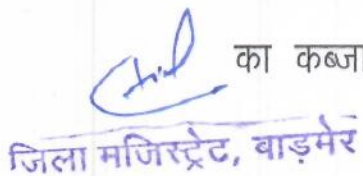 का कब्जा
जिला मजिस्ट्रेट, बाड़मेर